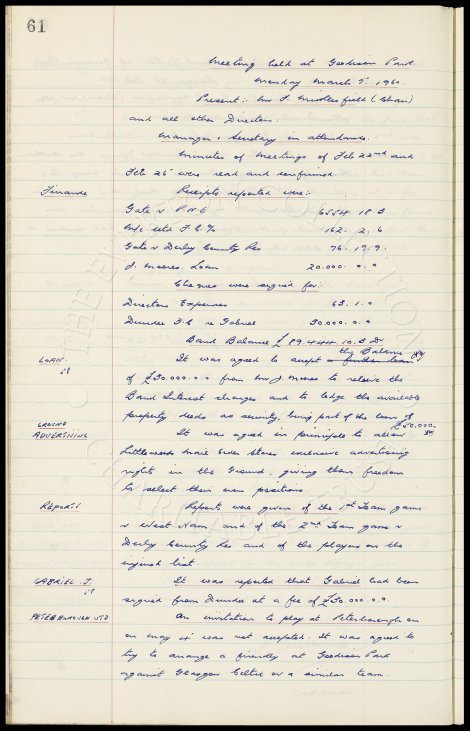 61
Meeting held at Goodison Park
Monday March 7. 1960.
Present:- Mr F. Micklesfield (Chair)
and all other Directors.
Manager & Secretary in attendance.
Minutes of meetings of Feb 22nd and
Feb 26 were read and confirmed.
Finance Receipts reported were:-
Gate v P.N.E 6584. 18. 3
M/c Utd F.C. % 162. 2. 6
Gate v Derby County Res 76. 17. 9.
J. Moores. Loan 20.000. 0. 0
Cheques were signed for:
Directors Expenses 63. 1. 0
Dundee F.C re Gabriel 30.000. 0. 0
Bank Balance £ 89.444. 10. 3 Dr
the Balance
LOAN. It was agreed to accept a further loan
of £30.000. 0. 0 from Mr J. Moores to relieve the
Bank Interest charges and to lodge the available
property deeds as security, being part of the loan of
£50,000.
GROUND
ADVERTISING It was agreed in principle to allow
Littlewoods Mail Order Stores exclusive advertising
rights in the Ground, giving them freedom
to select their own positions
REPORTS Reports were given of the 1st Team game
v West Ham and of the 2nd Team game v
Derby County Res and of the players on the
injured list.
GABRIEL. J. It was reported that Gabriel had been
signed from Dundee at a fee of £30.000. 0. 0.
PETERBOROUGH UTD An invitation to play at Peterborough on
on May 4 was not accepted. It was agreed to
try to arrange a friendly at Goodison Park
against Glasgow Celtic or a similar team.
THE EVERTON COLLECTION
CHARITABLE TRUST